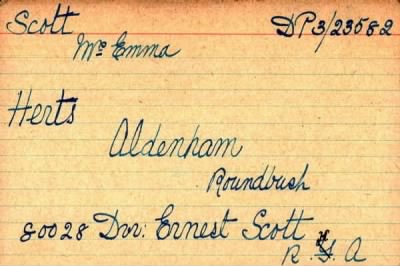 Scott DP3/23582
Mrs Emma
Herts
Aldenham
Roundbush
80028 Dvr: Ernest Scott
R. A